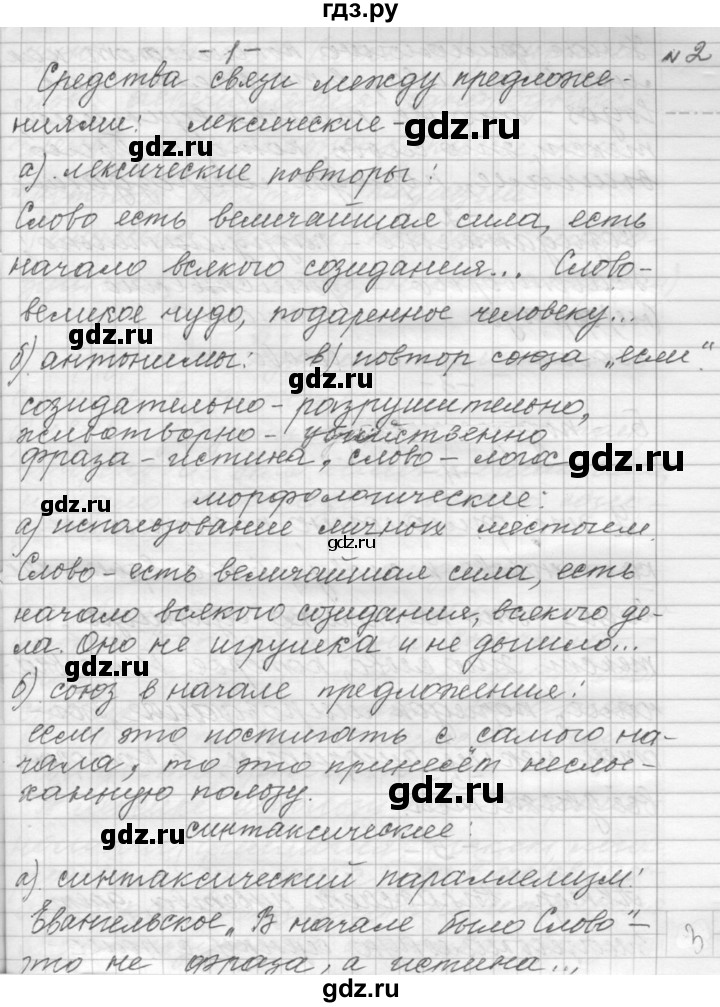 гдз.ру
-1- №2
Средства связи между предложе-
ниями: лексические-
gdz.ru
а) лексические повторы:
gdz.ru
Слово есть величайшая сила, есть
начало всякого созидания... Слово-
великое чудо, подаренное человеку...
gdz.ru
б) антонимы: в) повтор союза „если".
gdz.ru
созидательно - разрушительно,
животворно - убийственно
фраза - истина, слово - логос
gdz.ru
морфологические:
gdz.ru
а) использование личных местоим.
gdz.ru
Слово - есть величайшая сила, есть
начало всякого созидания, всякого де-
ла. Оно не игрушка и не дышло...
gdz.ru
б) союз в начале предложения:
если это постигать с самого на-
чала, то это принесёт неслы-
ханную пользу.
gdz.ru
gdz.ru
синтаксические:
gdz.ru
а) синтаксический параллелизм:
Евангельское „В начале было Слово"-
это не фраза, а истина...
3
gdz.ru